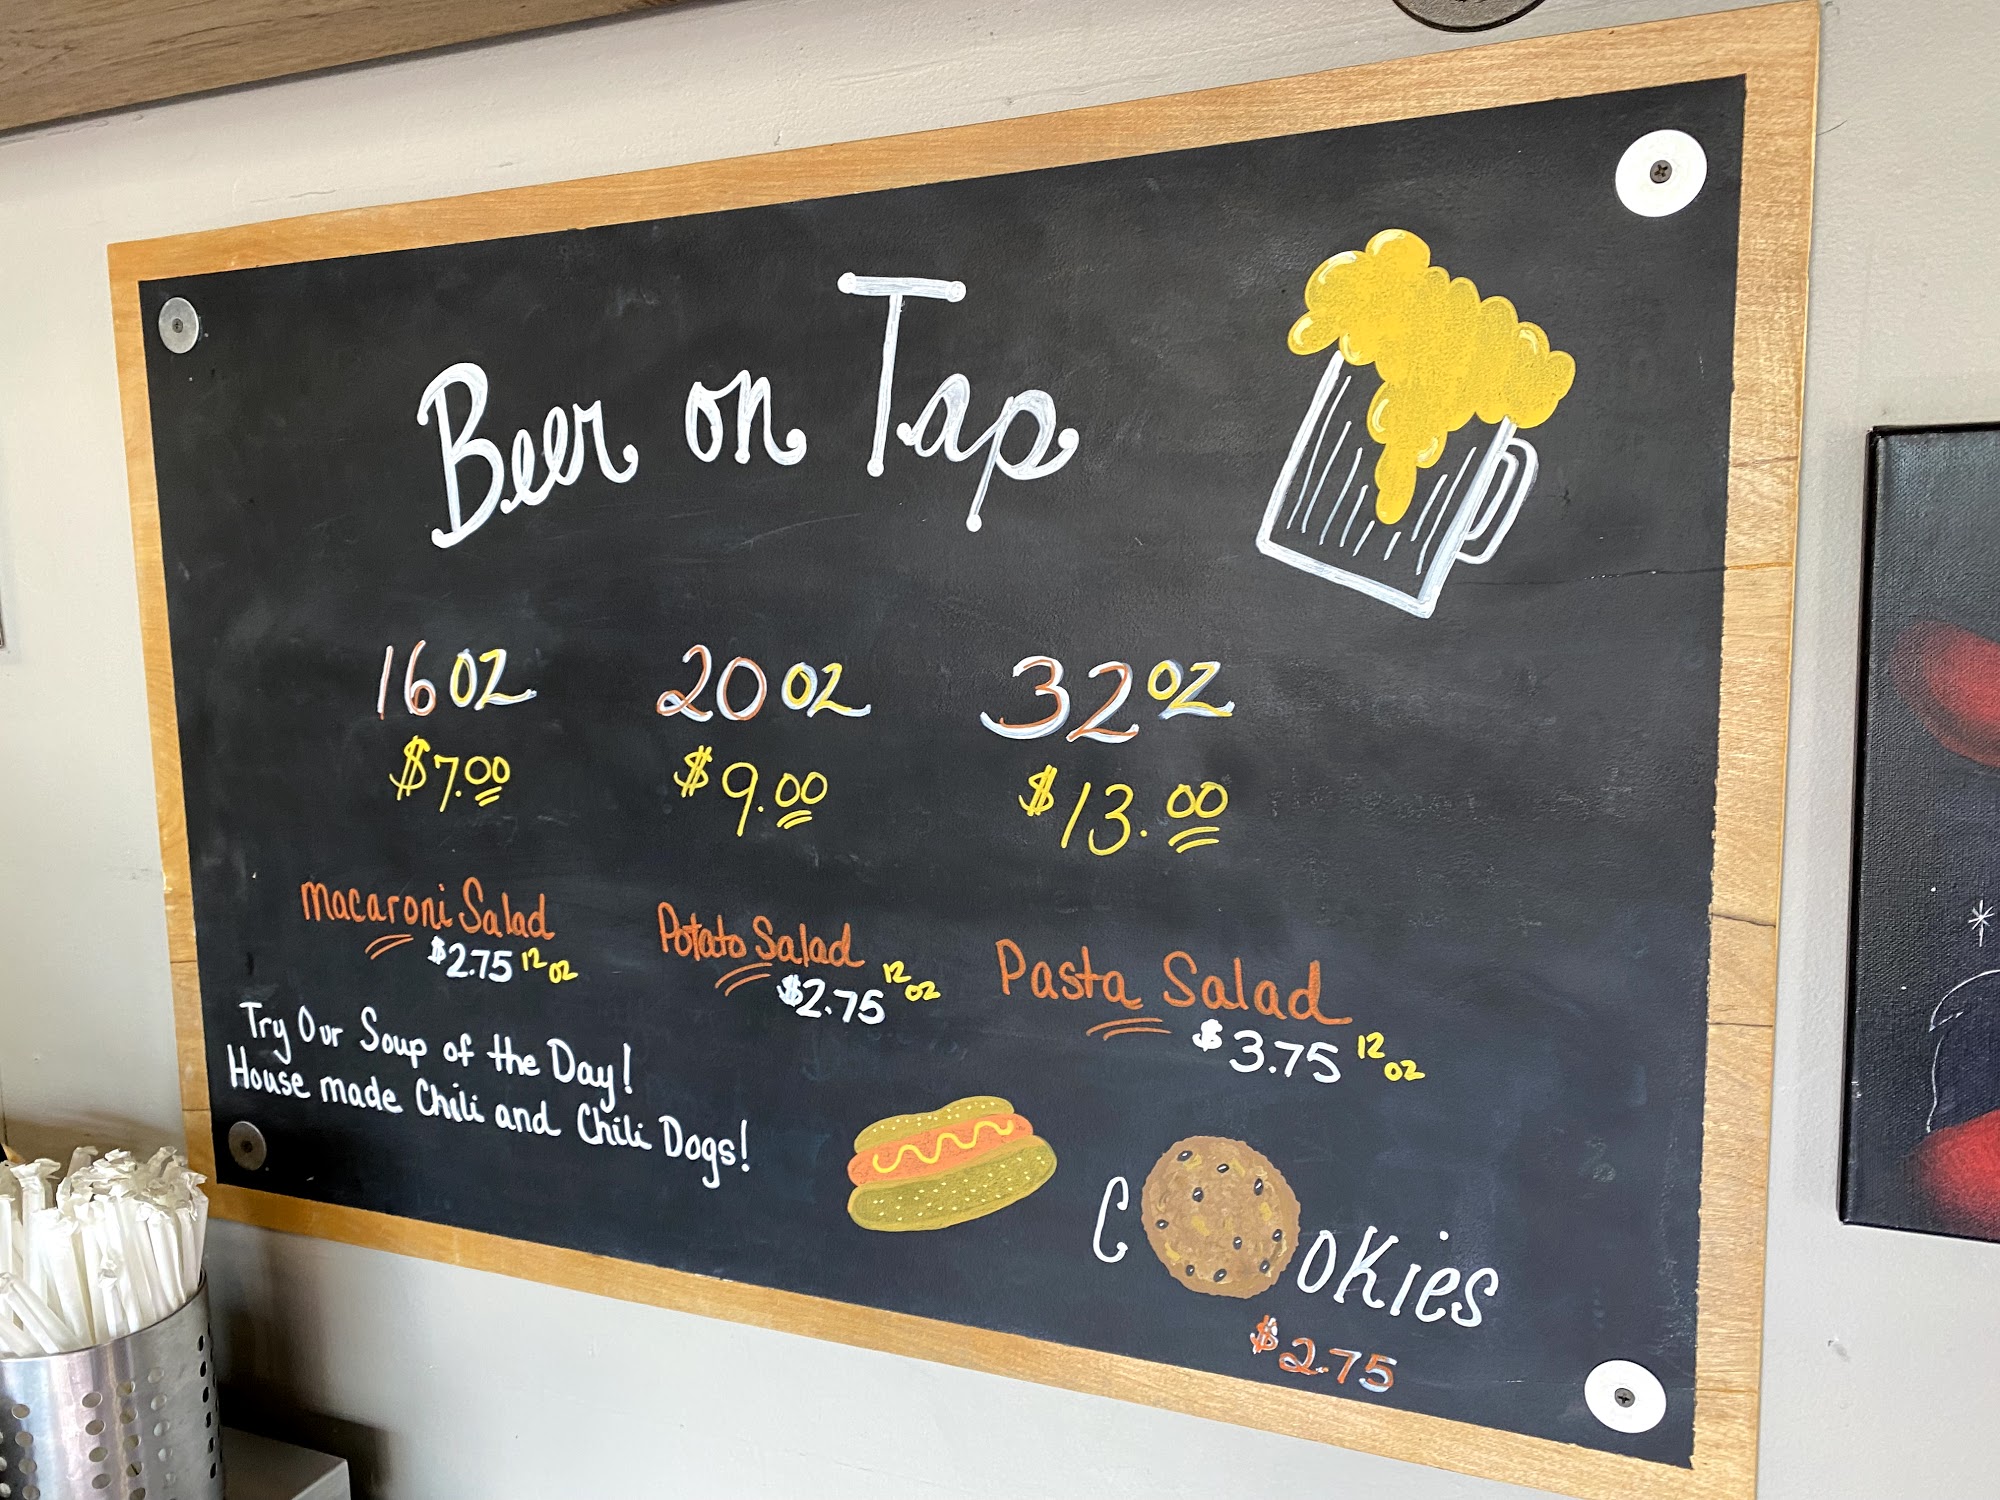 Beer on Tap
16 oz 20 oz 32 oz
$7.00 $9.00 $13.00
Macaroni Salad
$2.75 12 oz
Potato Salad
$2.75 12 oz
Pasta Salad
$3.75 12 oz
Try Our Soup of the Day!
House made Chili and Chili Dogs!
Cookies
$2.75